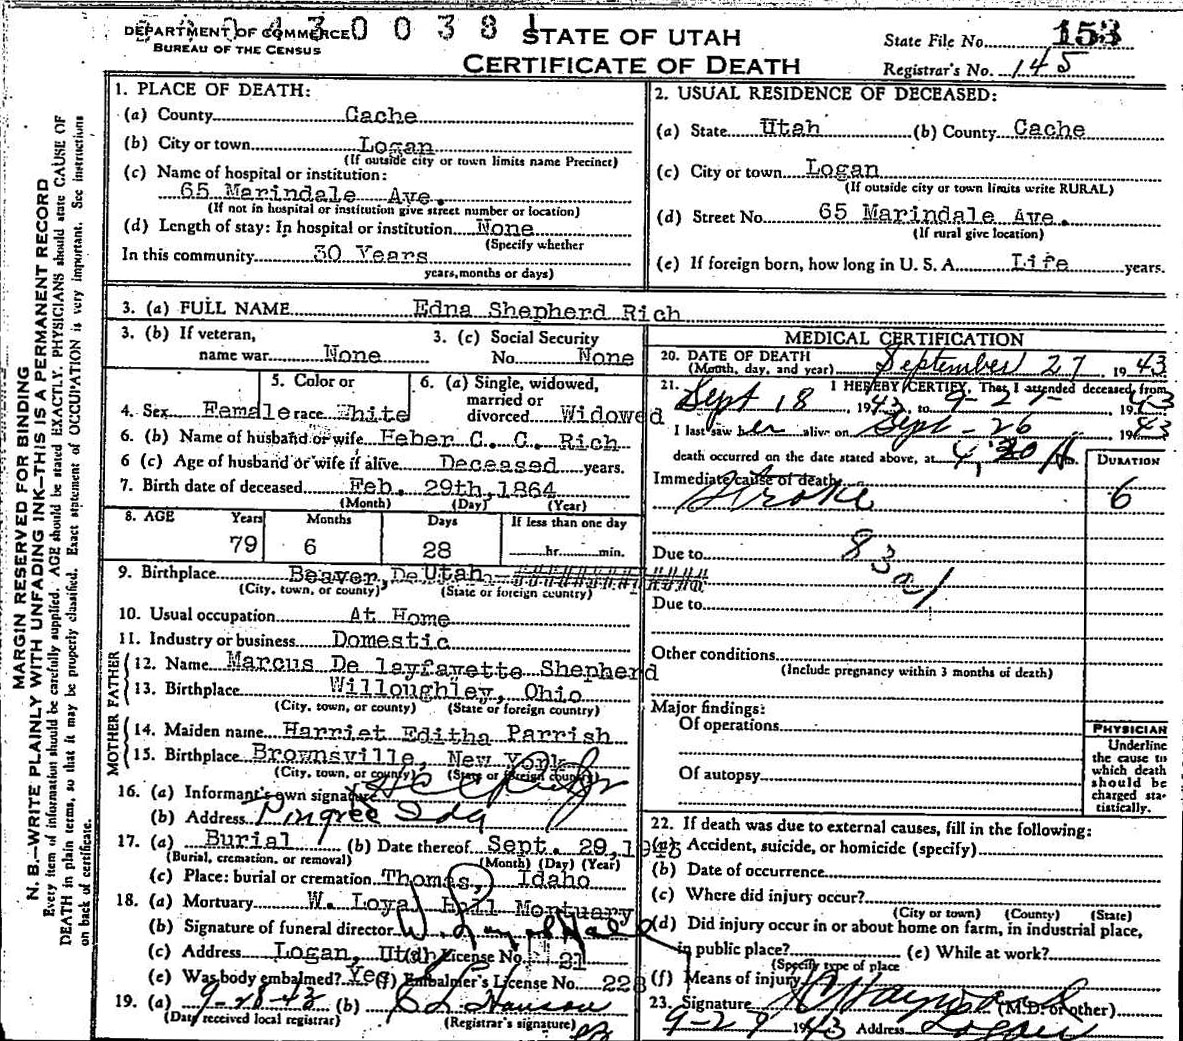 DEPARTMENT OF COMMERCE
BUREAU OF THE CENSUS
0 0 3 8 1
STATE OF UTAH
CERTIFICATE OF DEATH
State File No. 153
Registrar's No. 145
MARGIN RESERVED FOR BINDING
N. B.—WRITE PLAINLY WITH UNFADING INK—THIS IS A PERMANENT RECORD
Every item of information should be carefully supplied. AGE should be stated EXACTLY. PHYSICIANS should state CAUSE OF
DEATH in plain terms, so that it may be properly classified. Exact statement of OCCUPATION is very important. See instructions
on back of certificate.
1. PLACE OF DEATH:
(a) County Cache
(b) City or town Logan
(If outside city or town limits name Precinct)
(c) Name of hospital or institution:
65 Marindale Ave.
(If not in hospital or institution give street number or location)
(d) Length of stay: In hospital or institution None
(Specify whether
In this community 30 Years
years, months or days)
2. USUAL RESIDENCE OF DECEASED:
(a) State Utah (b) County Cache
(c) City or town Logan
(If outside city or town limits write RURAL)
(d) Street No. 65 Marindale Ave.
(If rural give location)
(e) If foreign born, how long in U. S. A. Life years.
3. (a) FULL NAME Edna Shepherd Rich
3. (b) If veteran,
name war None
3. (c) Social Security
No. None
5. Color or
4. Sex Female race White
6. (a) Single, widowed,
married or
divorced Widowed
6. (b) Name of husband or wife Heber C. C. Rich
6 (c) Age of husband or wife if alive Deceased years.
7. Birth date of deceased Feb. 29th, 1864
(Month) (Day) (Year)
8. AGE Years Months Days If less than one day
79 6 28 hr. min.
9. Birthplace Beaver, De Utah
(City, town, or county) (State or foreign country)
10. Usual occupation At Home
11. Industry or business Domestic
FATHER
12. Name Marcus De layfayette Shepherd
13. Birthplace Willoughley, Ohio
(City, town, or county) (State or foreign country)
MOTHER
14. Maiden name Harriet Editha Parrish
15. Birthplace Brownsville, New York
(City, town, or county) (State or foreign country)
16. (a) Informant's own signature H C C Rich Jr
(b) Address Pingree Ida
17. (a) Burial (b) Date thereof Sept. 29, 1943
(Burial, cremation, or removal) (Month) (Day) (Year)
(c) Place: burial or cremation Thomas, Idaho
18. (a) Mortuary W. Loyal Hall Mortuary
(b) Signature of funeral director W. Loyal Hall
(c) Address Logan, Utah (d) License No. 21
(e) Was body embalmed? Yes (f) Embalmer's License No. 228
19. (a) 9-28-43 (b)
(Date received local registrar) (Registrar's signature)
MEDICAL CERTIFICATION
20. DATE OF DEATH
(Month, day, and year) September 27, 1943
21. I HEREBY CERTIFY, That I attended deceased from
Sept 18, 1943, to 9-27-, 1943
I last saw her alive on Sept-26, 1943
death occurred on the date stated above, at 4:30 A m.
DURATION
Immediate cause of death
Stroke 6
Due to 83a1
Due to
Other conditions
(Include pregnancy within 3 months of death)
Major findings:
Of operations
Of autopsy
PHYSICIAN
Underline
the cause to
which death
should be
charged sta-
tistically.
22. If death was due to external causes, fill in the following:
(a) Accident, suicide, or homicide (specify)
(b) Date of occurrence
(c) Where did injury occur?
(City or town) (County) (State)
(d) Did injury occur in or about home on farm, in industrial place,
in public place? (e) While at work?
(Specify type of place
(f) Means of injury
23. Signature (M.D. or other)
9-29 1943 Address Logan